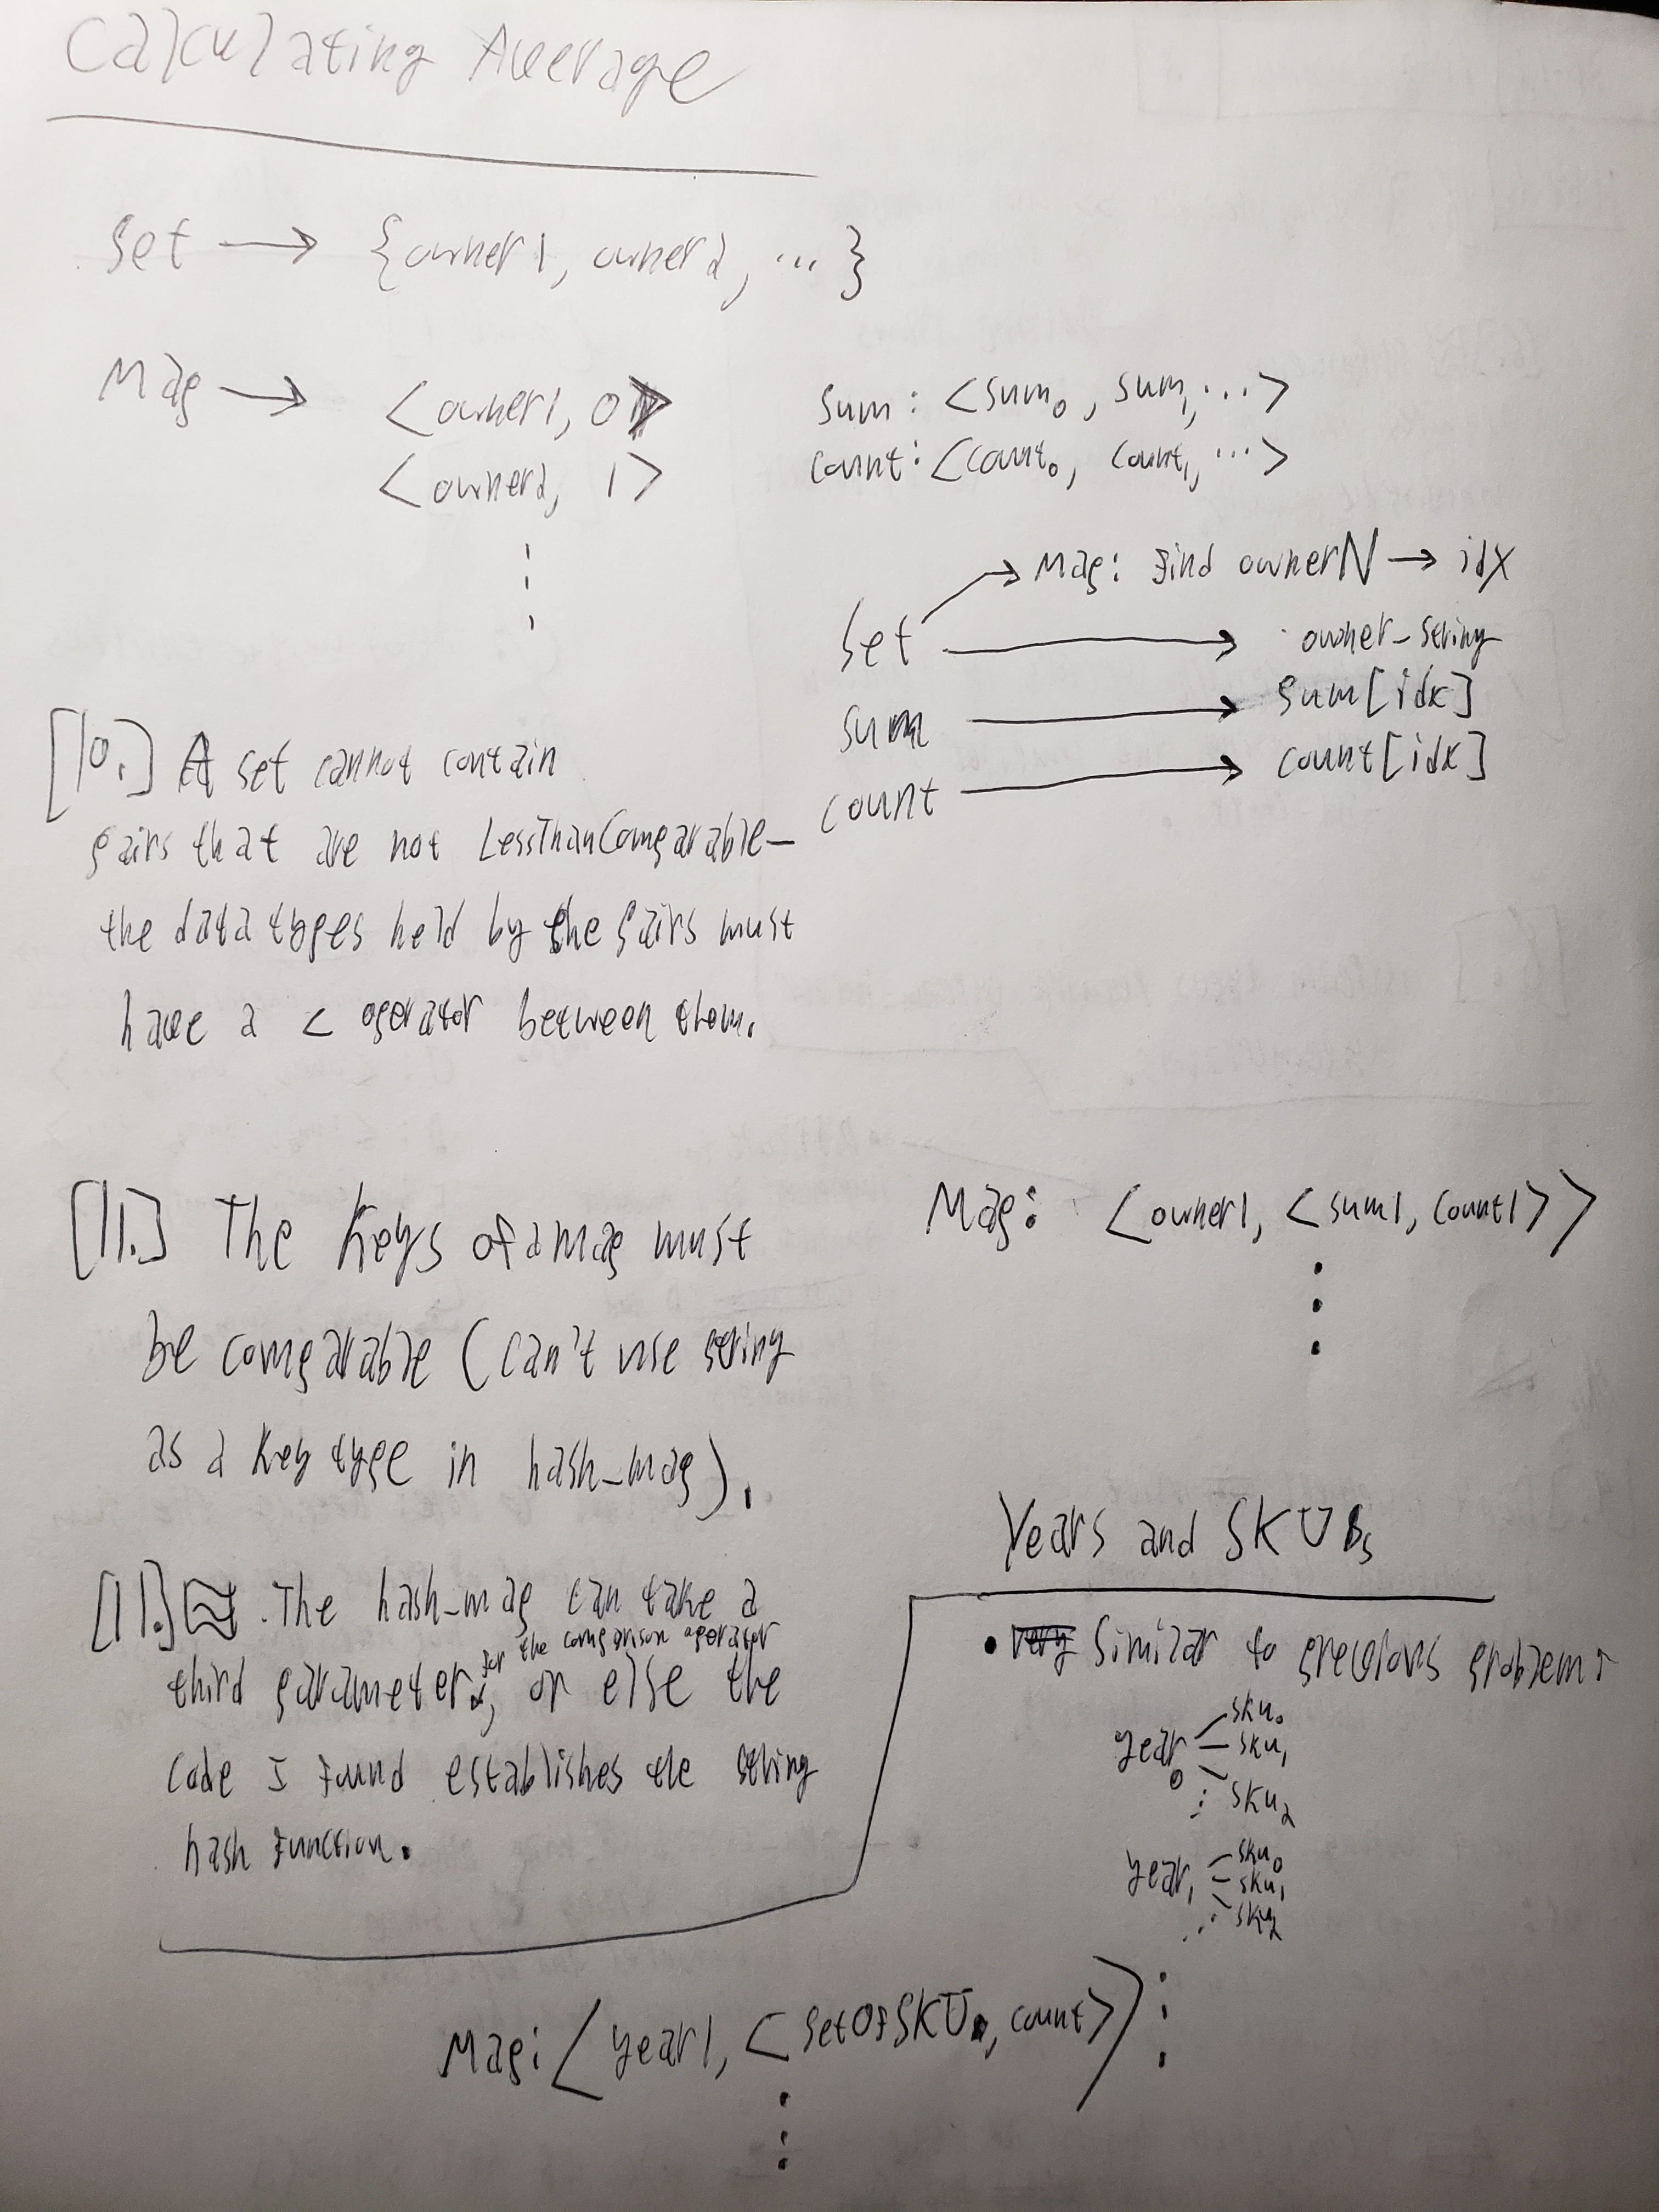 Calculating Average
Set → {owner1, owner2, ... }
Map → <owner1, 0>
<owner2, 1>
⋮
sum: <sum₀, sum₁, ...>
count: <count₀, count₁, ...>
Map: Find ownerN → idx
Set → owner_string
sum → sum[idx]
count → count[idx]
[10.] A set cannot contain
pairs that are not LessThanComparable—
the data types held by the pairs must
have a < operator between them.
[11.] The Keys of a map must
be comparable (can't use string
as a key type in hash_map).
Map: <owner1, <sum1, count1>>
⋮
[11.] The hash_map can take a
third parameter for the comparison operator, or else the
code I found establishes the string
hash function.
Years and SKUs
• very Similar to previous problem:
year₀
sku₀
sku₁
⋮ sku₂
year₁
sku₀
sku₁
⋮ sku₂
⋮
Map: <year1, <setOfSKU, count>>
⋮